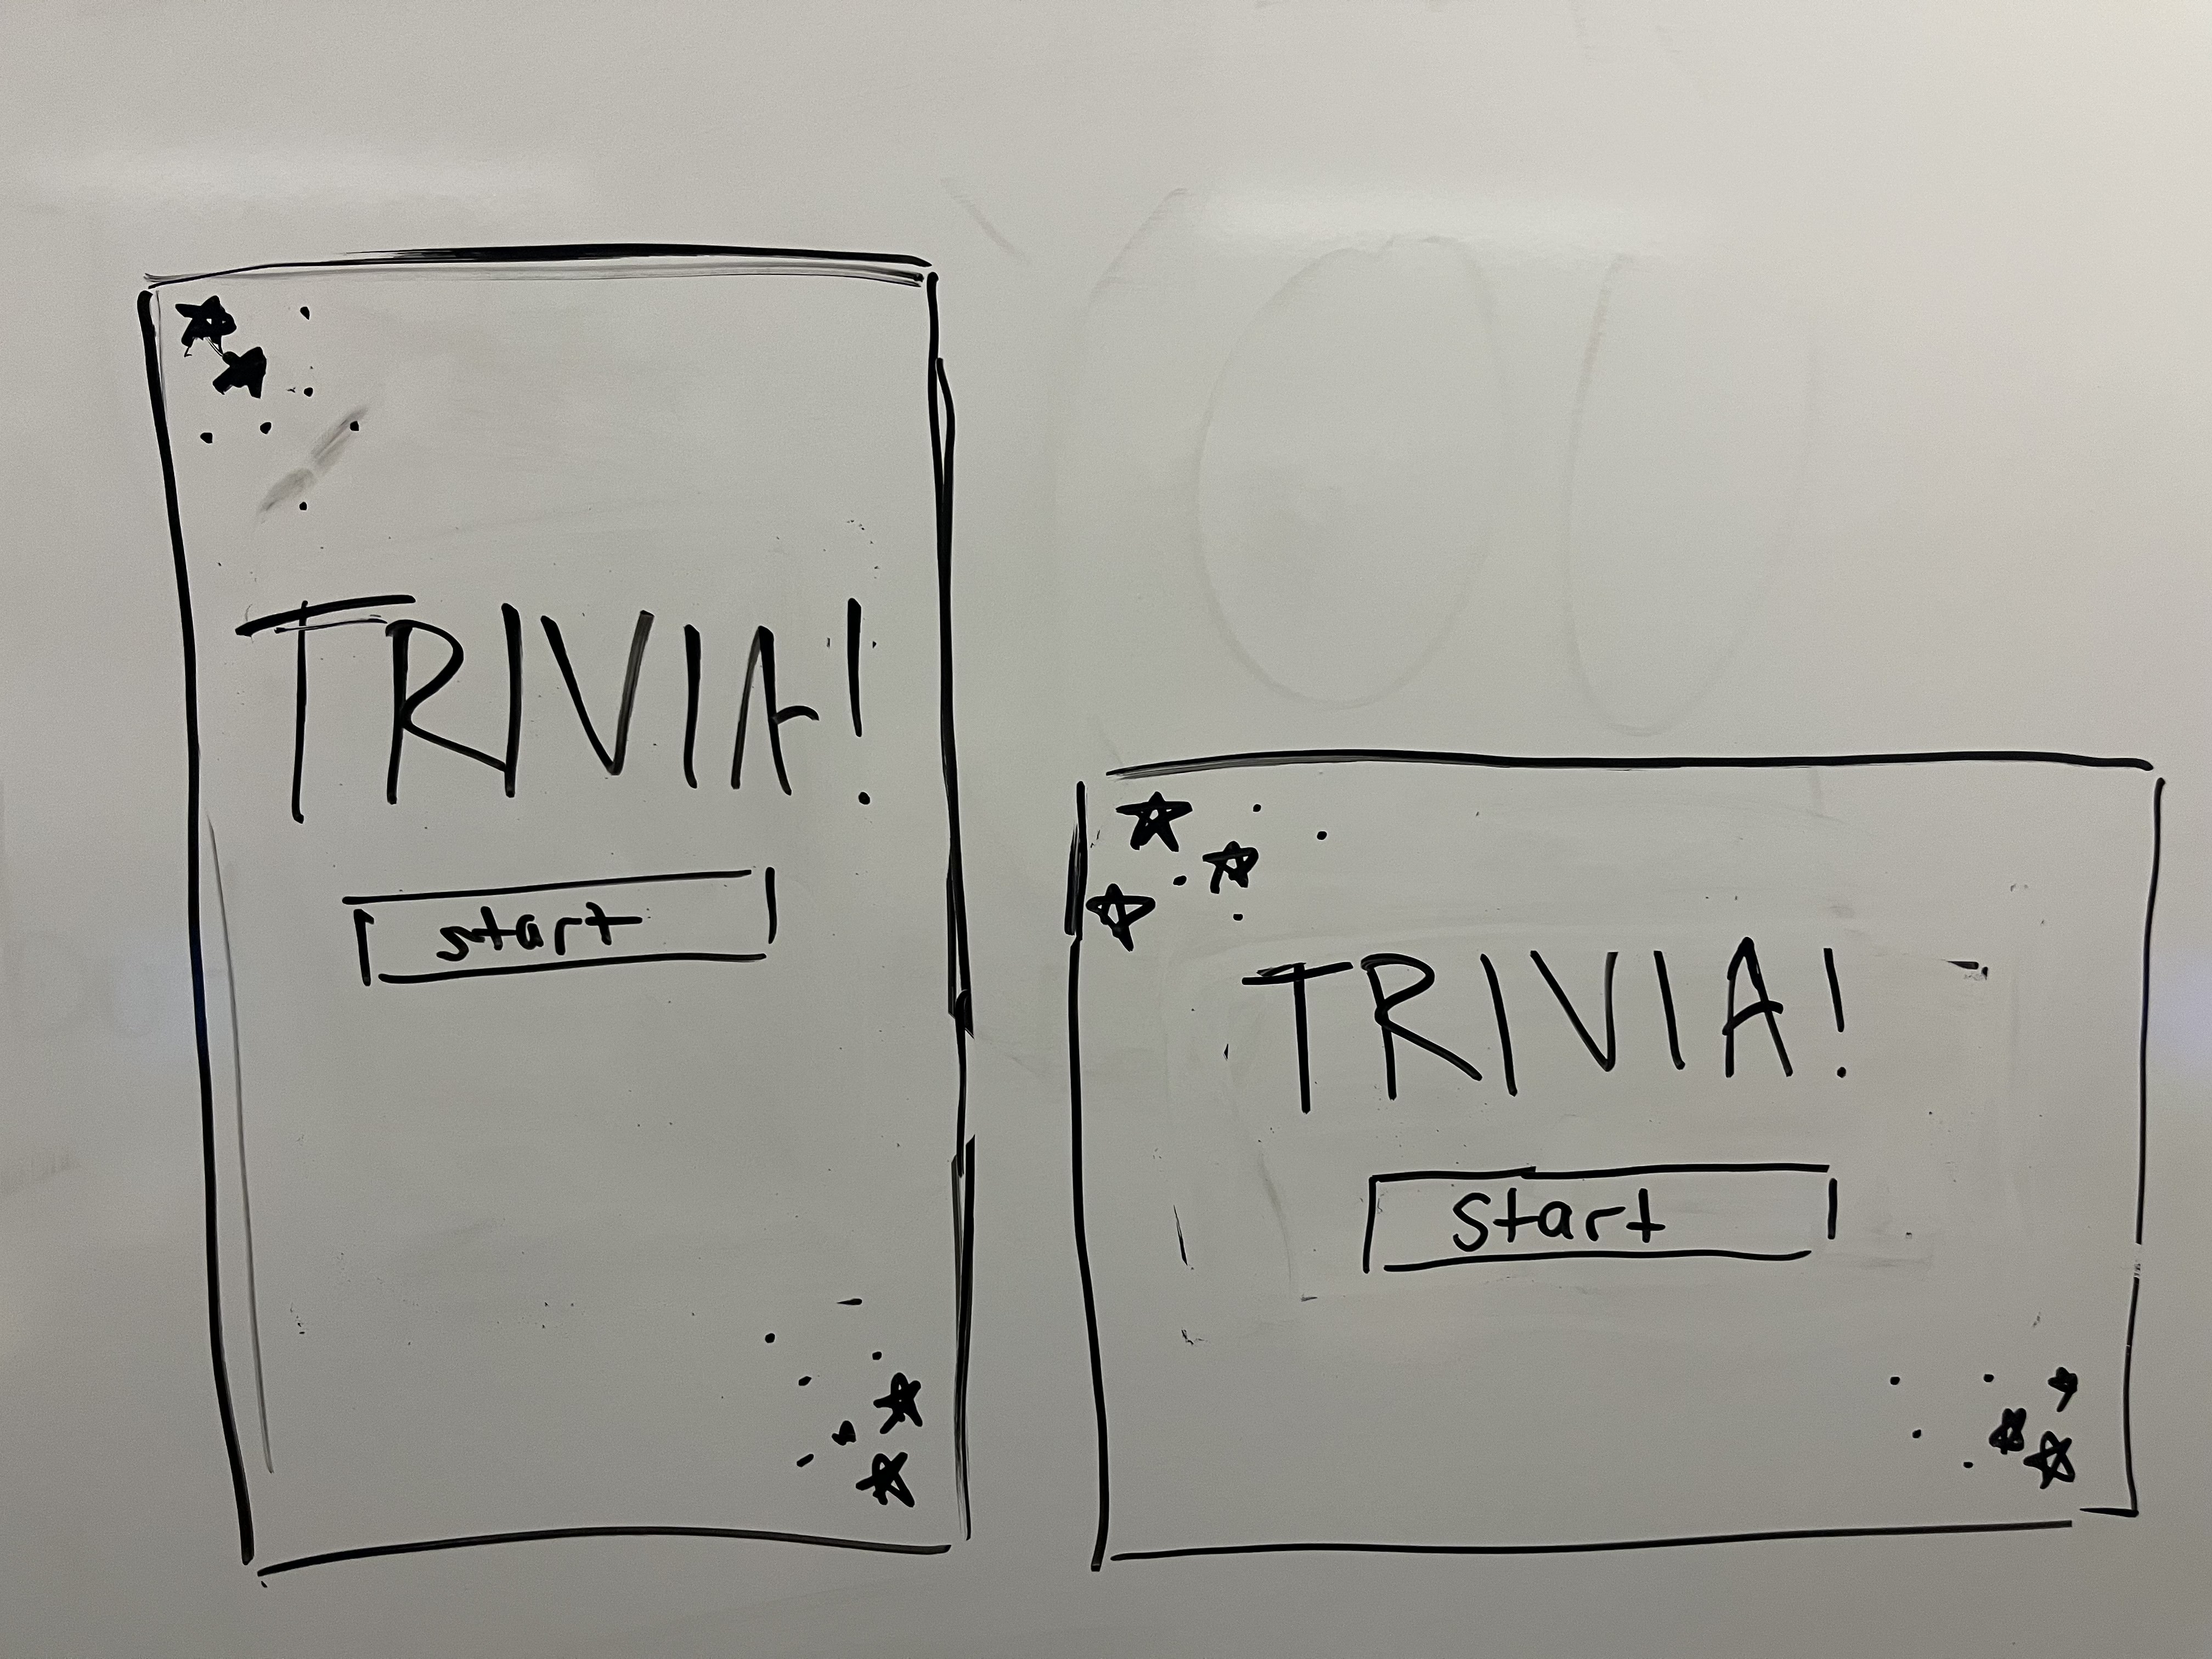 TRIVIA!
start
TRIVIA!
start